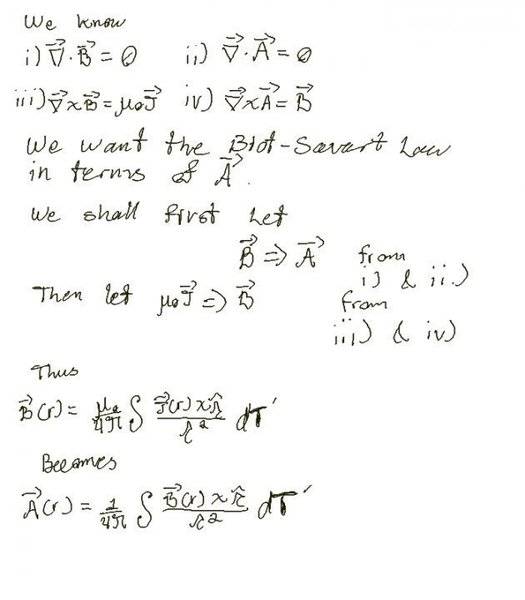 We know
i) ∇⃗·B⃗ = 0 ii) ∇⃗·A⃗ = 0
iii) ∇⃗xB⃗ = μ₀J⃗ iv) ∇⃗xA⃗ = B⃗
We want the Biot-Savart Law
in terms of A⃗.
We shall first Let
B⃗ => A⃗ from
i) & ii.)
Then let μ₀J⃗ => B⃗ from
iii) & iv)
Thus
B⃗(r) = μ₀/4π ∫ J⃗(r) x r̂ / r² dT'
Becomes
A⃗(r) = 1/4π ∫ B⃗(r) x r̂ / r² dT'